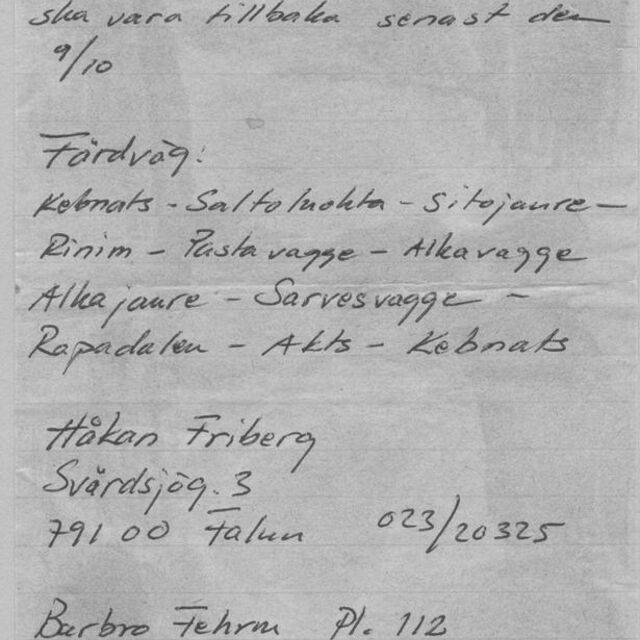 ska vara tillbaka senast den
9/10
Färdväg:
Kebnats - Saltoluokta - Sitojaure -
Rinim - Pastavagge - Alkavagge
Alkajaure - Sarvesvagge -
Rapadalen - Akts - Kebnats
Håkan Friberg
Svärdsjög. 3
791 00 Falun 023/20325
Barbro Fehrm Pl. 112